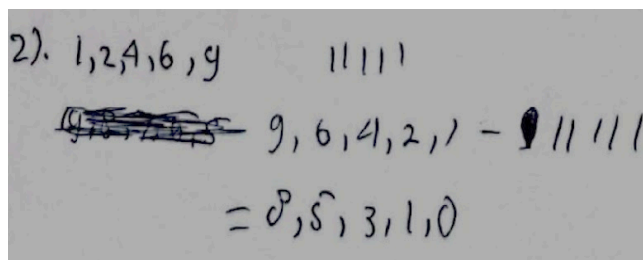 2). 1,2,4,6,9 11111
9,6,4,2,1 - 11111
= 8,5,3,1,0